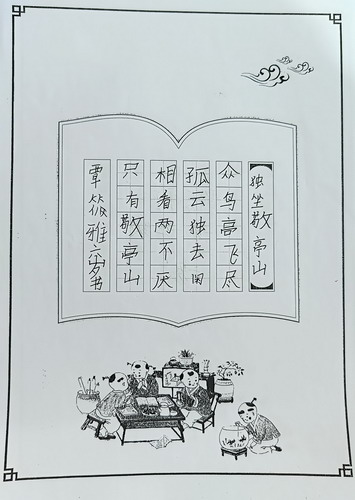 独坐敬亭山
众鸟高飞尽
孤云独去闲
相看两不厌
只有敬亭山
覃筱雅六岁书